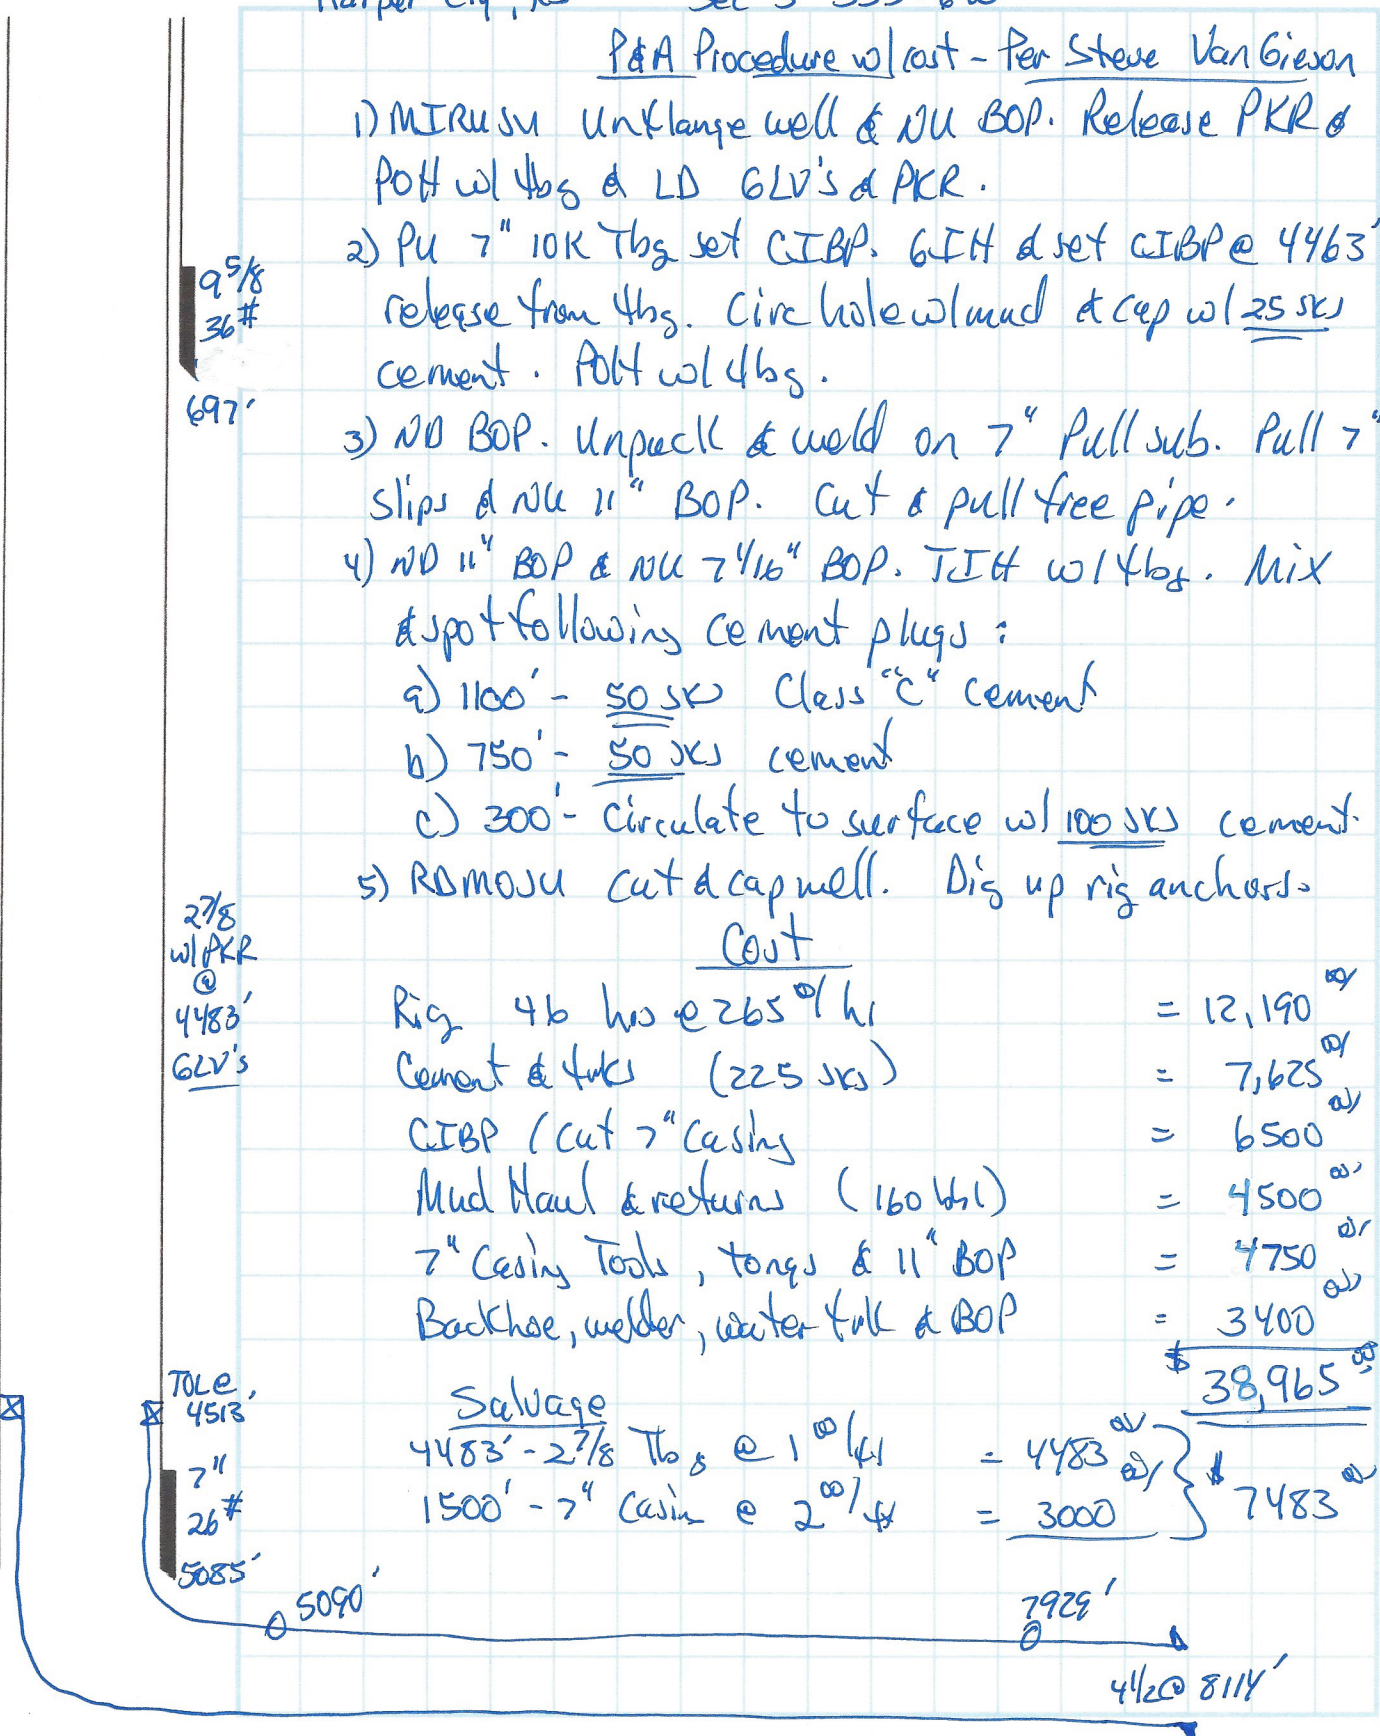 Harper Cty, KS Sec 3-35S-6W
P&A Procedure w/cost - Per Steve VanGieson
1) MIRUSU Unflange well & NU BOP. Release PKR &
POH w/ tbg & LD GLV's & PKR.
2) PU 7" 10K Tbg set CIBP. GIH & set CIBP @ 4463'
release from tbg. Circ hole w/mud & cap w/ 25 sks
cement. POH w/ tbg.
3) ND BOP. Unpack & weld on 7" Pull sub. Pull 7"
slips & NU 11" BOP. Cut & pull free pipe.
4) ND 11" BOP & NU 7 1/16" BOP. TIH w/ tbg. Mix
& spot following cement plugs:
a) 1100' - 50 sks Class "C" cement
b) 750' - 50 sks cement
c) 300' - Circulate to surface w/ 100 sks cement.
5) RDMOSU cut & cap well. Dig up rig anchors.
9 5/8
36#
697'
2 7/8
w/PKR
@
4483'
GLV's
Cost
Rig 46 hrs @ 265 00/hr = 12,190 00/
Cement & trks (225 sks) = 7,625 00/
CIBP / Cut 7" Casing = 6500 00/
Mud Haul & returns (160 bbl) = 4500 00/
7" Casing Tools, tongs & 11" BOP = 4750 00/
Backhoe, welder, water trk & BOP = 3400 00/
$ 38,965 00/
TOL @
4513'
7"
26#
5085'
Salvage
4483' - 2 7/8 Tbg @ 1 00/ft = 4483 00/
1500' - 7" Casin @ 2 00/ft = 3000 00/
$ 7483 00/
5090'
7929'
4 1/2 @ 8114'